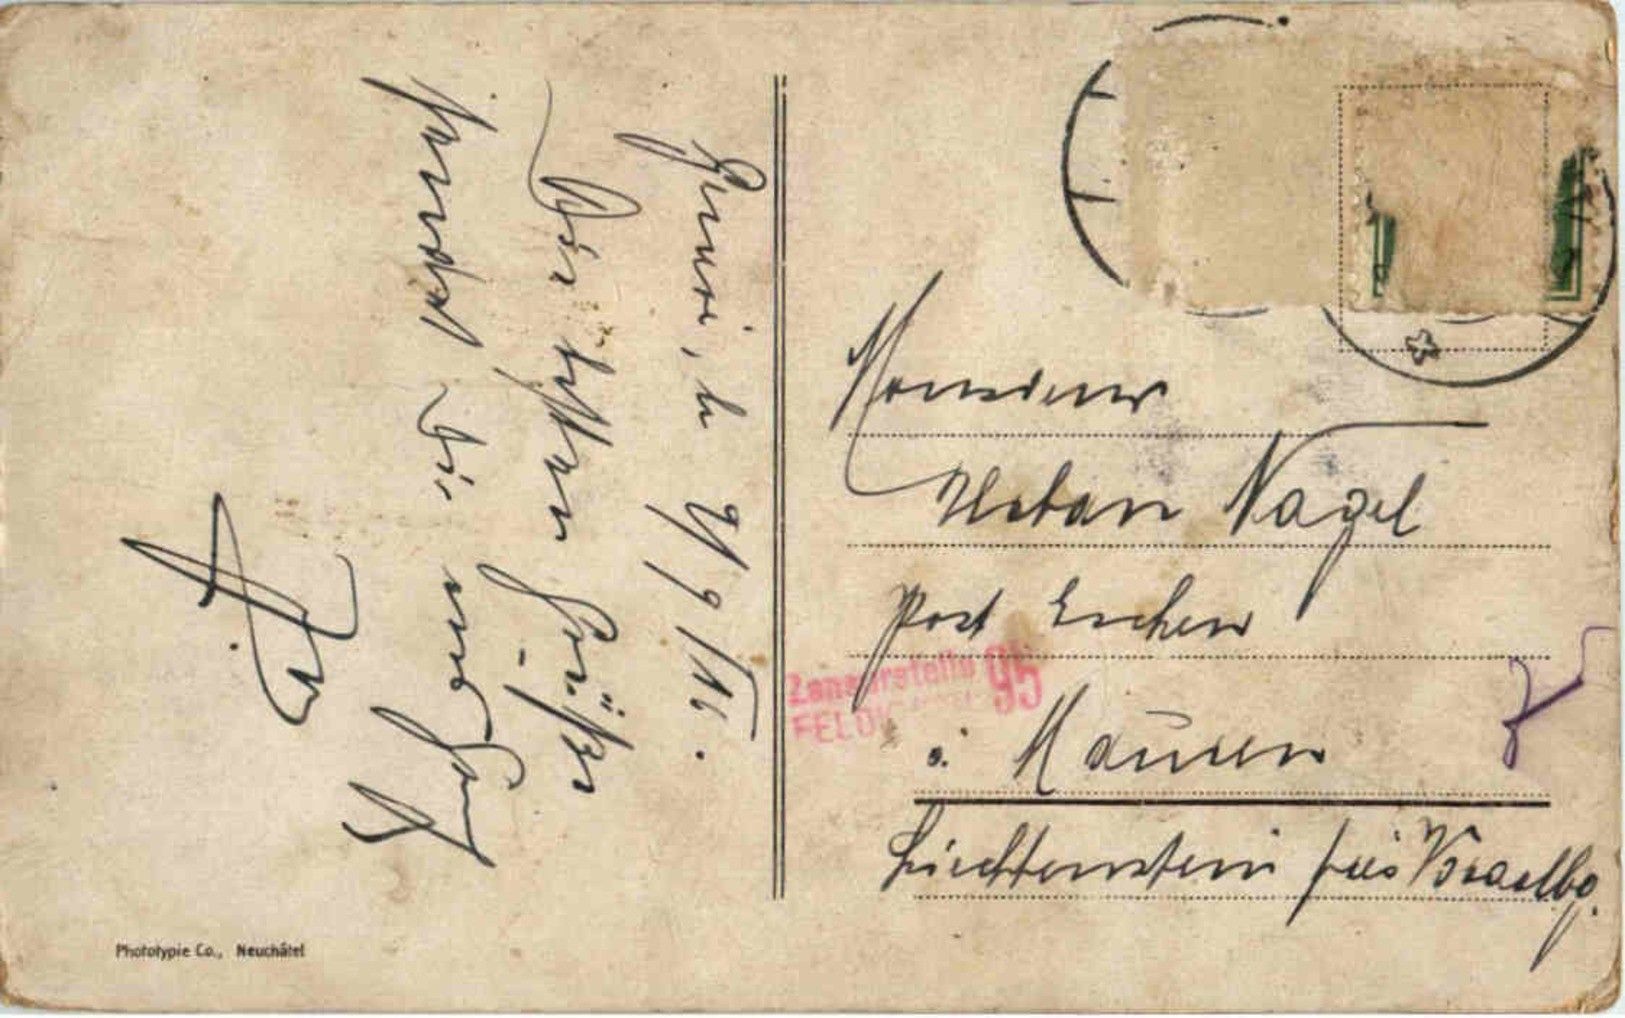 Genève, le 2/9/16.
Die besten Grüße
sendet Dir und
Monsieur
Urban Nagel
Post Eschen
i. Mauren
Liechtenstein près Vorarlbg.
Zensurstelle 95
FELDK
Phototypie Co., Neuchâtel